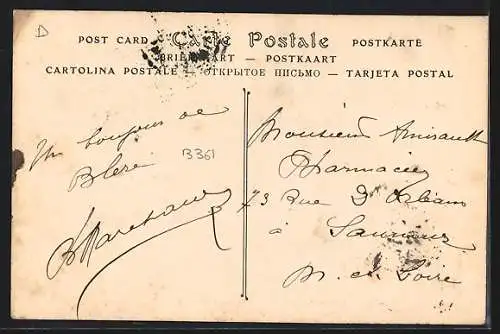 D
POST CARD — Carte Postale — POSTKARTE
BRIEFKAART — POSTKAART
CARTOLINA POSTALE — ОТКРЫТОЕ ПИСЬМО — TARJETA POSTAL
Un bonjour de
Bléré
B361
A Marchand
Monsieur Amirault
Pharmacien
73 Rue D'Orléans
à Saumur
M. et Loire